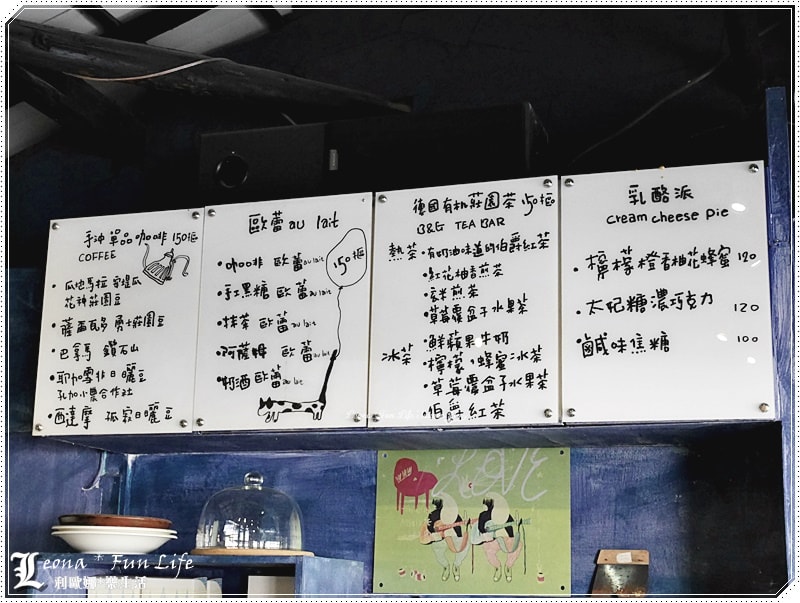 手沖單品咖啡 150枢
COFFEE
・瓜地馬拉 安堤瓜
花神莊園豆
・薩爾瓦多 勇士莊園豆
・巴拿馬 鑽石山
・耶加雪非日曬豆
孔加小農合作社
・西達摩 孤寂日曬豆
歐蕾 au lait
150枢
・咖啡 歐蕾 au lait
・手工黑糖 歐蕾 au lait
・抹茶 歐蕾 au lait
・阿薩姆 歐蕾 au lait
・奶酒歐蕾 au lait
德國有机莊園茶 150枢
B&G TEA BAR
熱茶 ・有奶油味道的伯爵紅茶
・紅花柚香煎茶
・玄米煎茶
・草莓覆盆子水果茶
・鮮蘋果牛奶
冰茶 ・檸檬、蜂蜜冰茶
・草莓覆盆子水果茶
・伯爵紅茶
乳酪派
cream cheese pie
・檸檬橙香柚花蜂蜜 120
・太妃糖濃巧克力 120
・鹹味焦糖 100
LOVE
Leona * Fun Life
莉歐娜*樂生活